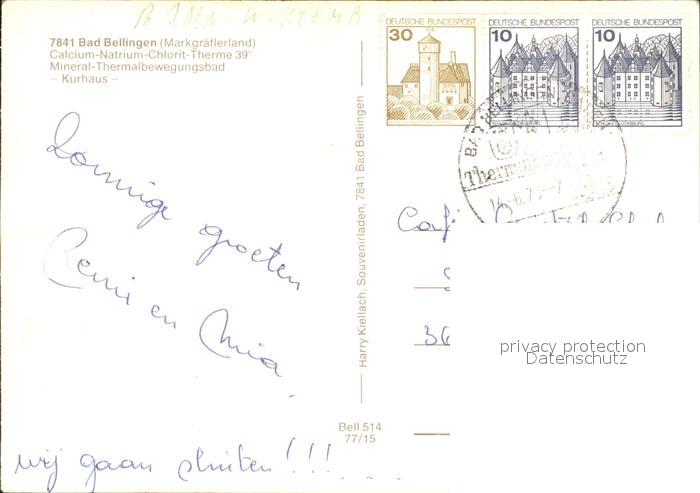 BADEN-WÜRTEMB
7841 Bad Bellingen (Markgräflerland)
Calcium-Natrium-Chlorit-Therme 39°
Mineral-Thermalbewegungsbad
– Kurhaus –
DEUTSCHE BUNDESPOST
30
DEUTSCHE BUNDESPOST
10
SCHLOSS GLÜCKSBURG
DEUTSCHE BUNDESPOST
10
SCHLOSS GLÜCKSBURG
BAD BELLINGEN
Zonnige groeten
Remi en Mia.
wij gaan sluiten!!!...
Harry Kiellach, Souvenirladen, 7841 Bad Bellingen
Bell 514
77/15
Café
36
privacy protection
Datenschutz